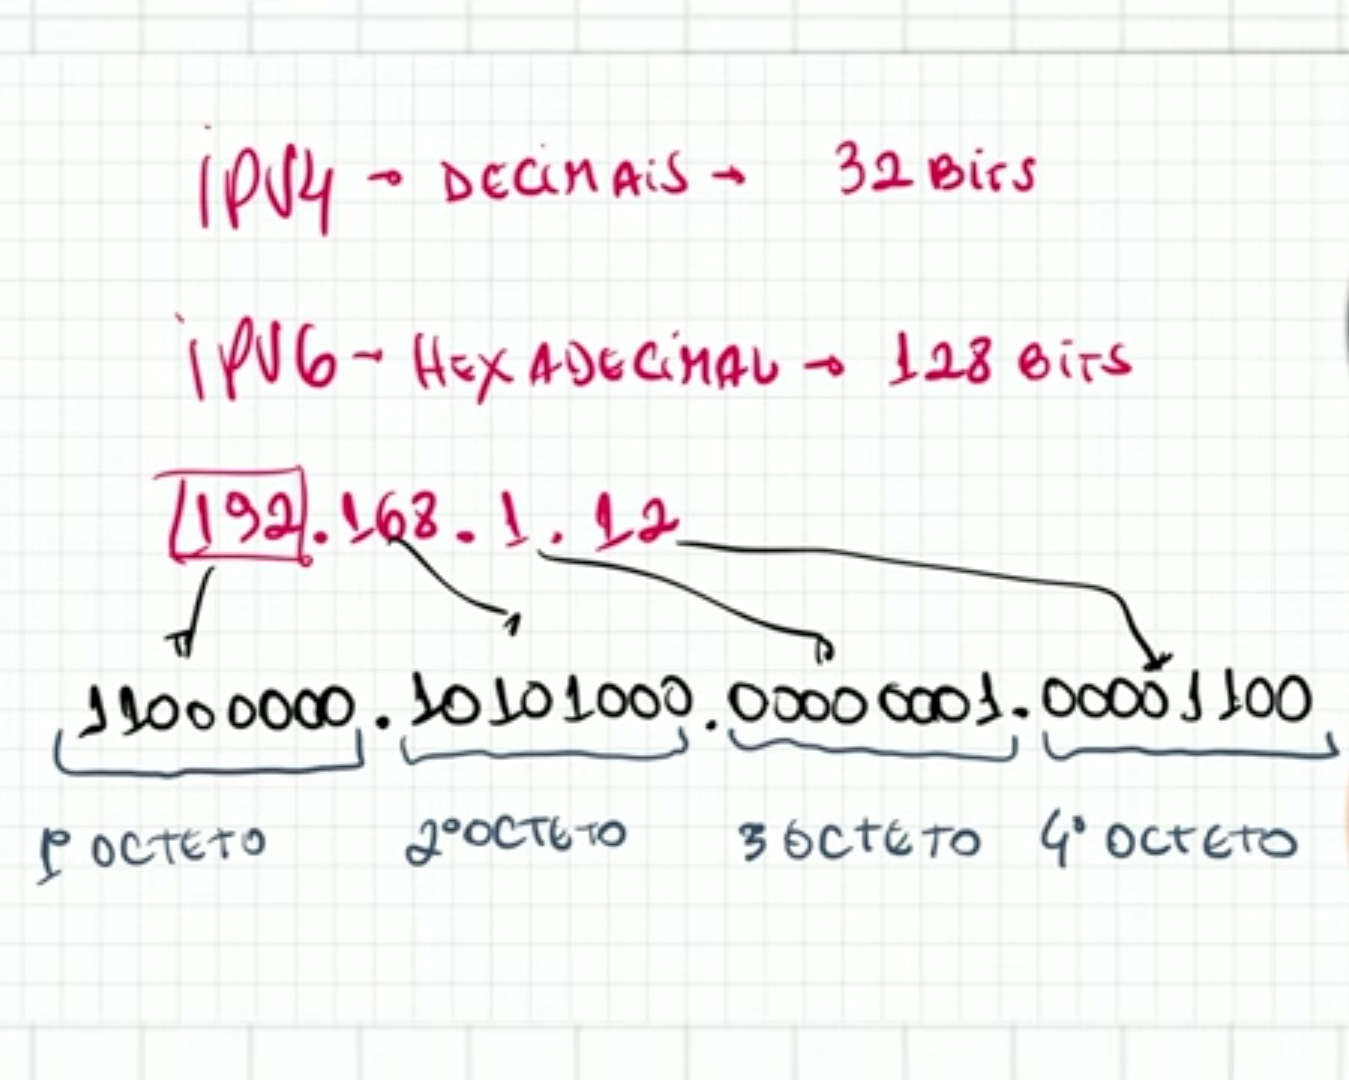 iPV4 → DECIMAIS → 32 BiTS
iPV6 → HEXADECIMAL → 128 BiTS
192.168.1.12
11000000.10101000.00000001.00001100
1º OCTETO 2º OCTETO 3 OCTETO 4º OCTETO